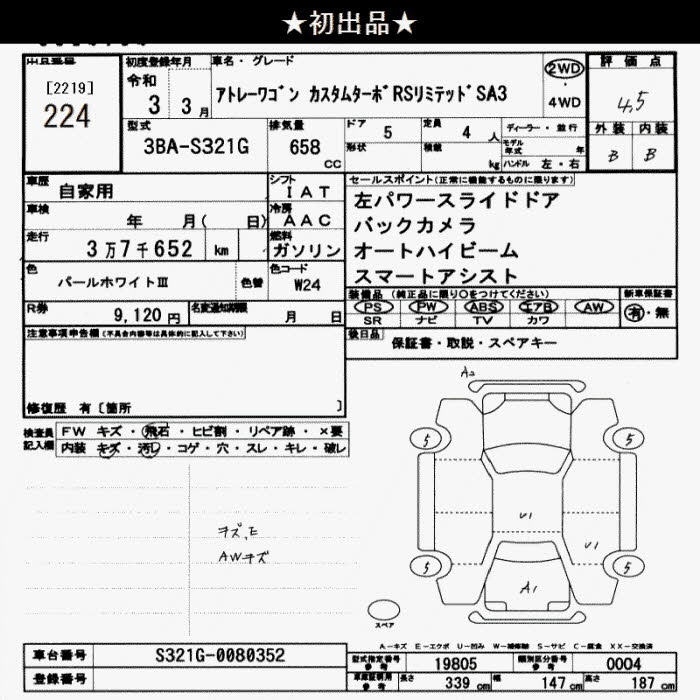 ★初出品★
出品番号
[2219]
224
初度登録年月
令和
3 3月
車名・グレード
アトレーワゴン カスタムターボRSリミテッドSA3
2WD
・
4WD
評価点
4.5
外装 内装
B B
型式
3BA-S321G
排気量
658
CC
ドア
5
定員
4 人
形状
積載
kg
ディーラー・並行
モデル年式 年
ハンドル 左・右
車歴
自家用
シフト
IAT
車検
年 月( 日)
冷房
AAC
走行
3万7千652 km
燃料
ガソリン
色
パールホワイトⅢ
色替
色コード
W24
R券
9,120円
名変通知期限
月 日
セールスポイント(正常に機能するものに限ります)
左パワースライドドア
バックカメラ
オートハイビーム
スマートアシスト
装備品(純正品に限り○をつけてください)
PS PW ABS エアB AW
SR ナビ TV カワ
新車保証書
有・無
後日品
保証書・取説・スペアキー
注意事項申告欄(不具合内容等は具体的に記入して下さい)
修復歴 有〔箇所 〕
検査員記入欄
FW キズ・飛石・ヒビ割・リペア跡・×要
内装 キズ・汚レ・コゲ・穴・スレ・キレ・破レ
AWキズ
A2
5 5
U1
U1
5 5
A1
スペア
A-キズ E-エクボ U-凹み W-補修跡 S-サビ C-腐食 XX-交換済
車台番号
S321G-0080352
登録番号
型式指定番号
参考
19805
類別区分番号
参考
0004
車庫証明用
参考
長さ
339 cm
幅
147 cm
高さ
187 cm